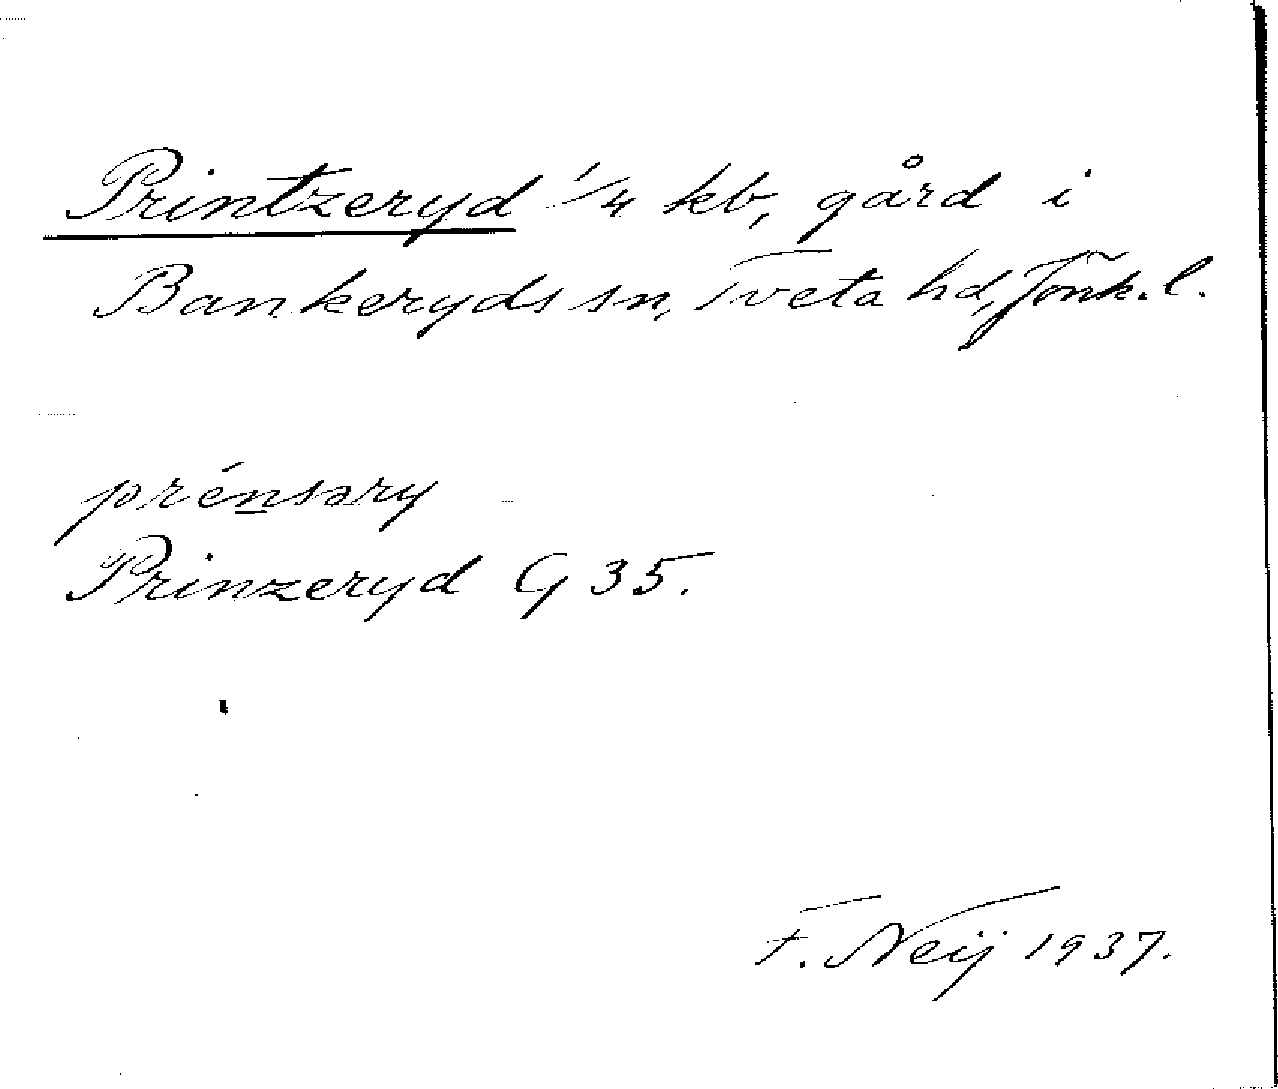 Printzeryd 1/4 kb, gård i
Bankeryds sn, Tveta hd, Jönk. l.
prénsəry
Prinzeryd G 35.
F. Neij 1937.